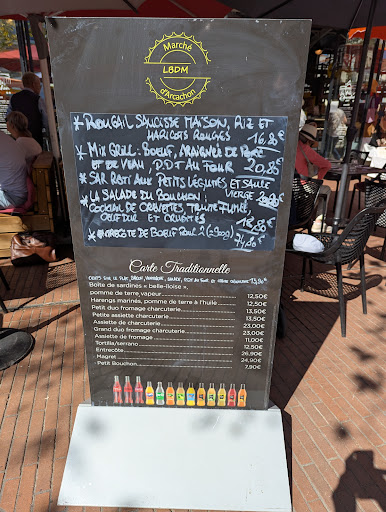 Marché
LBDM
d'Arcachon
* ROUGAIL SAUCISSE MAISON, RIZ ET
HARICOTS ROUGES 16,80€
* MIX GRILL: BOEUF, ARAIGNÉE DE PORC
ET DE VEAU, PDT AU FOUR 20,80€
* SAR ROTI AUX PETITS LÉGUMES ET SAUCE
VIERGE
* LA SALADE DU BOUCHON:
COCKTAIL DE CREVETTES, TRUITE FUMÉE,
OEUF DUR ET CRUDITÉS 18,80€
* ENTRECÔTE DE BOEUF POUR 2
Carte Traditionnelle
Boîte de sardines « belle-iloise »
pomme de terre vapeur 12,50€
Harengs marinés, pomme de terre à l'huile 12,50€
Petit duo fromage charcuterie 13,50€
Petite assiette charcuterie 13,50€
Assiette de charcuterie 23,00€
Grand duo fromage charcuterie 23,00€
Assiette de fromage 11,00€
Tortilla/serrano 12,50€
Entrecôte 26,80€
Magret 24,90€
Petit Bouchon 7,90€